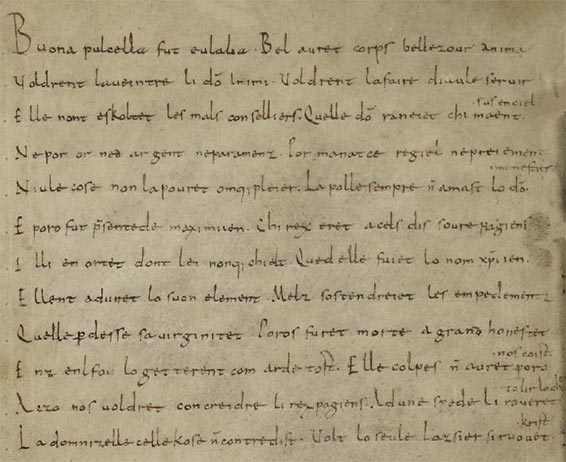 Buona pulcella fut eulalia. Bel auret corps bellezour anima
Voldrent laveintre li dō inimi. Voldrent lafaire diavle servir
Elle nont eskoltet les mals conselliers. Quelle dō raneiet chi maent
sus en ciel
Ne por or ned argent neparamenz. Por manatce regiel nepreiement
Niule cose non lapouret omqi pleier. La polle sempre ñ amast lo dō
menestier
E poro fut p̄sentede maximiien. Chi rex eret acels dis soure pagiens
Illi en ortet dont lei nonqi chielt. Qued elle fuiet lo nom xp̄iien.
Ellent aduret lo suon element. Melz sostendreiet les empedementz
Quelle ꝑdesse sa virginitet. Poros furet morte a grand honestet
Enz enl fou lo getterent com arde tost. Elle colpes ñ auret poro
nos coist
Aezo nos voldret concreidre li rex pagiens. Ad une spede li roveret
tolir lo chief
La domnizelle celle kose ñ contredist. Volt lo seule lazsier si ruovet
krist